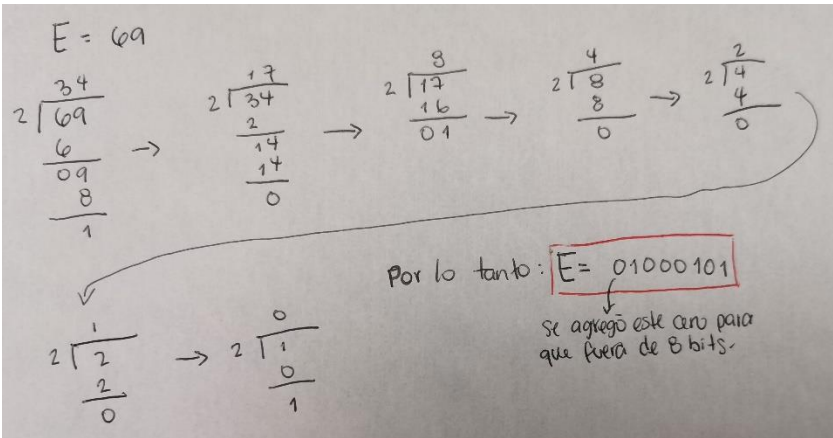 E = 69
34
2 69
6
09
8
1
→
17
2 34
2
14
14
0
→
8
2 17
16
01
→
4
2 8
8
0
→
2
2 4
4
0
1
2 2
2
0
→
0
2 1
0
1
Por lo tanto: E= 01000101
se agregó este cero para
que fuera de 8 bits.